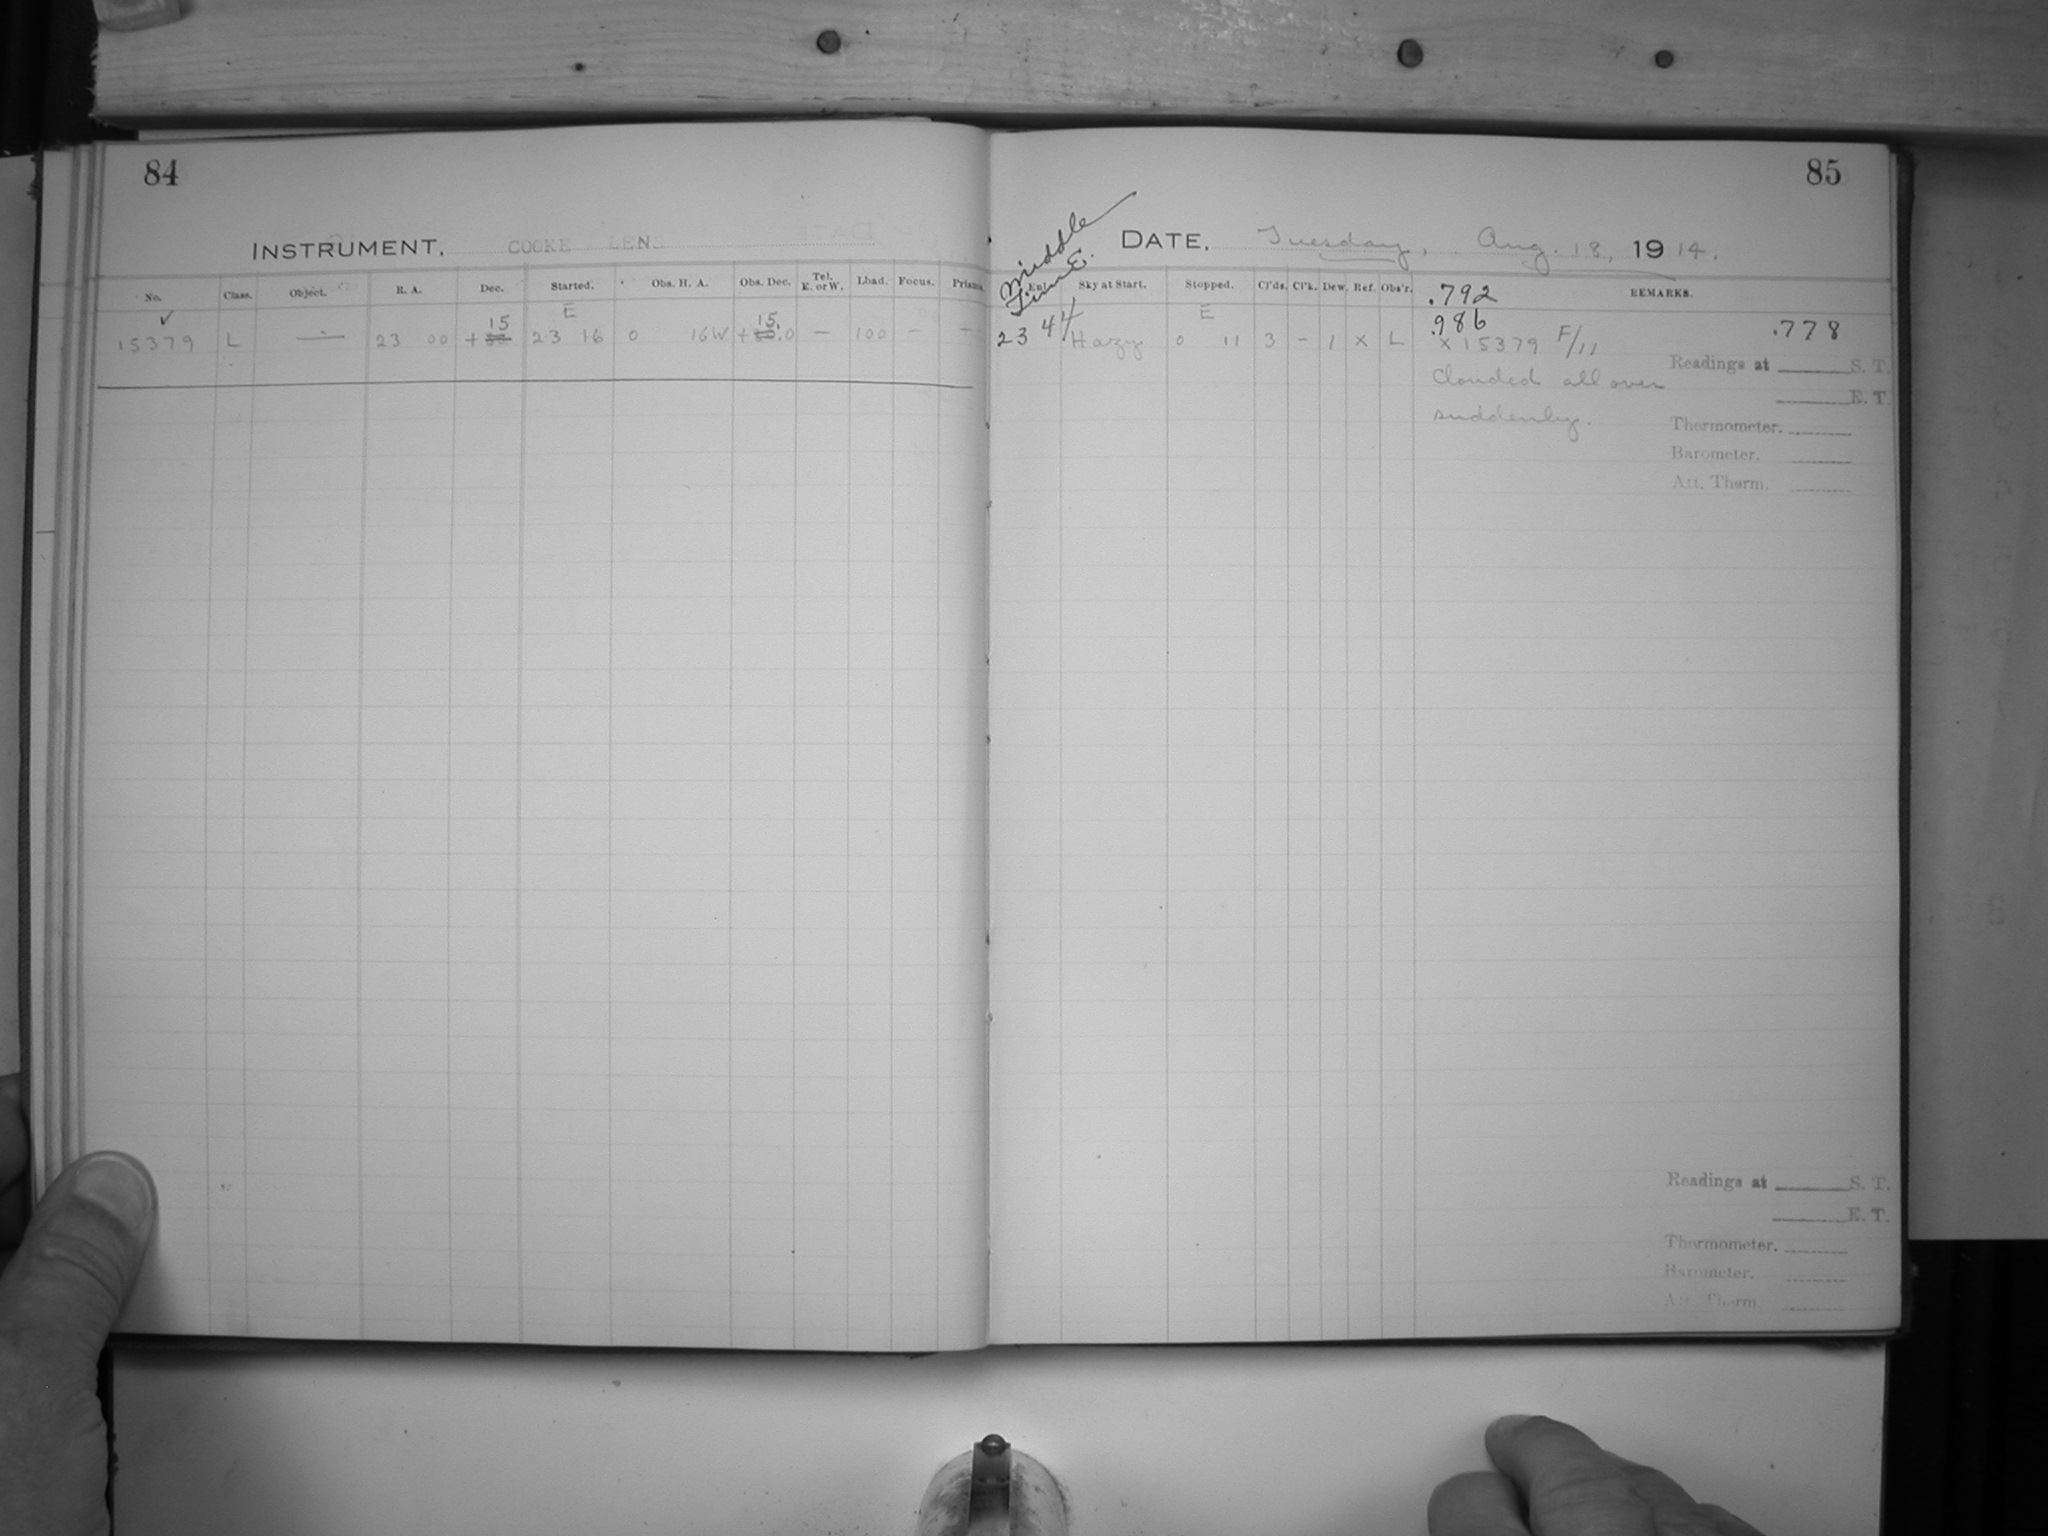 84
INSTRUMENT, COOKE LENS
No. Class. Object. R. A. Dec. Started. Obs. H. A. Obs. Dec. Tel. E. or W. Load. Focus. Prisms
✓ 15 E 15.
15379 L — 23 00 + 23 16 0 16W + .0 — 100 — —
85
Middle
Time E.
DATE, Tuesday, Aug. 18, 1914.
Sky at Start. Stopped. Cl'ds. Cl'k. Dew. Ref. Obs'r. .792 REMARKS.
E .986 .778
23 44 Hazy 0 11 3 - 1 X L X 15379 F/11
Readings at S. T.
Clouded all over
E. T.
suddenly.
Thermometer.
Barometer.
Att. Therm.
Readings at S. T.
E. T.
Thermometer.
Barometer.
Att. Therm.